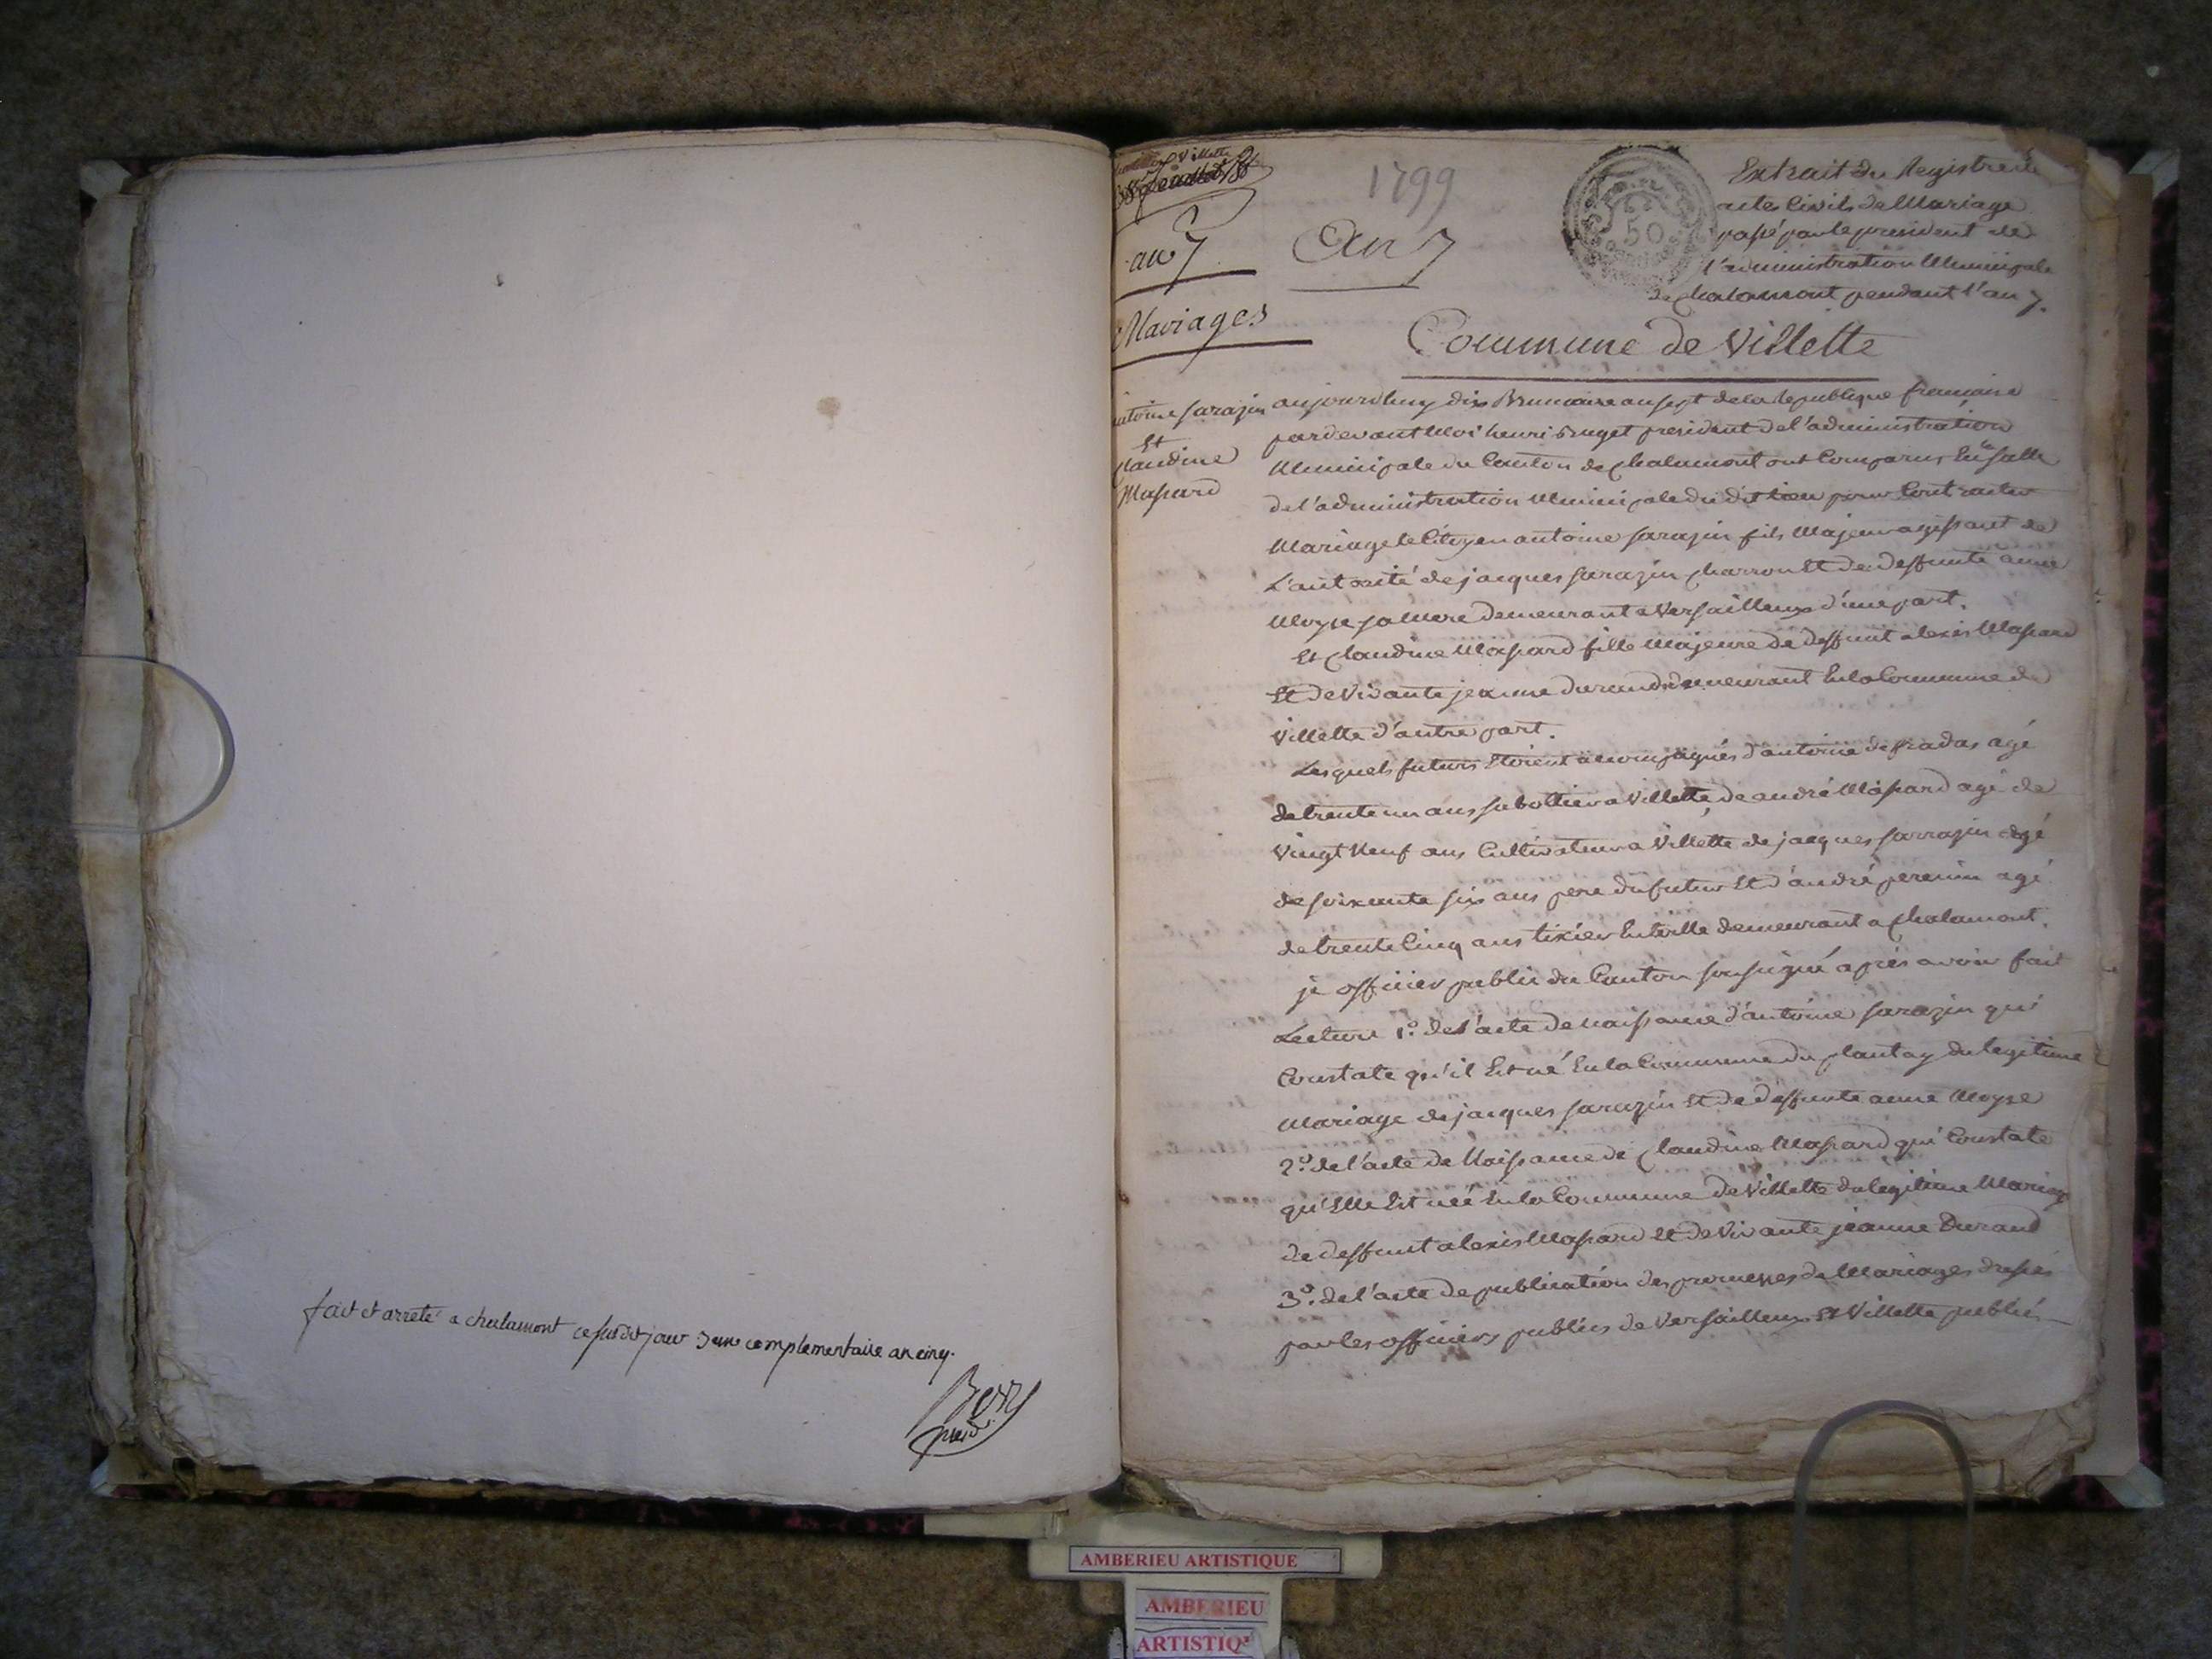 fait et arreté a chalamont ce susdit jour 3eme complementaire an cinq.
presid.
an 7
Mariages
antoine sarazin
Et
Claudine
Maſsard
1799
An 7
50
Extrait du Registre des
actes Civils de Mariage
paſsé par le president de
l'administration Municipale
de chalamont pendant l'an 7.
Commune de Villette
aujourdhuy dix Brumaire an sept de la republique francaise
pardevant Moi henri Buget president de l'administration
Municipale du Canton de chalamont ont Comparus En la salle
de l'administration Municipale du dit lieu pour Contracter
Mariage le Citoyen antoine sarazin fils Majeur agiſsant de
L'autorité de jacques sarazin charron Et de deffunte anne
Moyse sa Mere demeurant a Versailleux d'une part.
Et Claudine Maſsard fille Majeure de deffunt alexis Maſsard
Et de Vivante jeanne durand demeurant En la Commune de
Villette d'autre part.
Lesquels futurs Etoient accompagnés d'antoine desfradas agé
de trente un ans sabottier a Villette, de andré Maſsard agé de
Vingt Neuf ans Cultivateur a Villette de jacques sarrazin agé
de soixante six ans pere du futur Et d'andré perenin agé
de trente Cinq ans tixier En toille demeurant a chalamont.
je officier public du Canton souſsigné après avoir fait
Lecture 1.° de l'acte de naiſsance d'antoine sarazin qui
Constate qu'il Est né En la Commune du plantay du legitime
Mariage de jacques sarazin Et de deffunte anne Moyse
2.° de l'acte de Naiſsance de Claudine Maſsard qui Constate
qu'Elle Est née En la Commune de Villette du legitime Mariage
de deffunt alexis Maſsard Et de Vivante jeanne Durand
3.° de l'acte de publication des promeſses de Mariages dreſsés
par les officiers publics de Versailleux Et Villette publiés
AMBERIEU ARTISTIQUE
AMBERIEU
ARTISTIQ